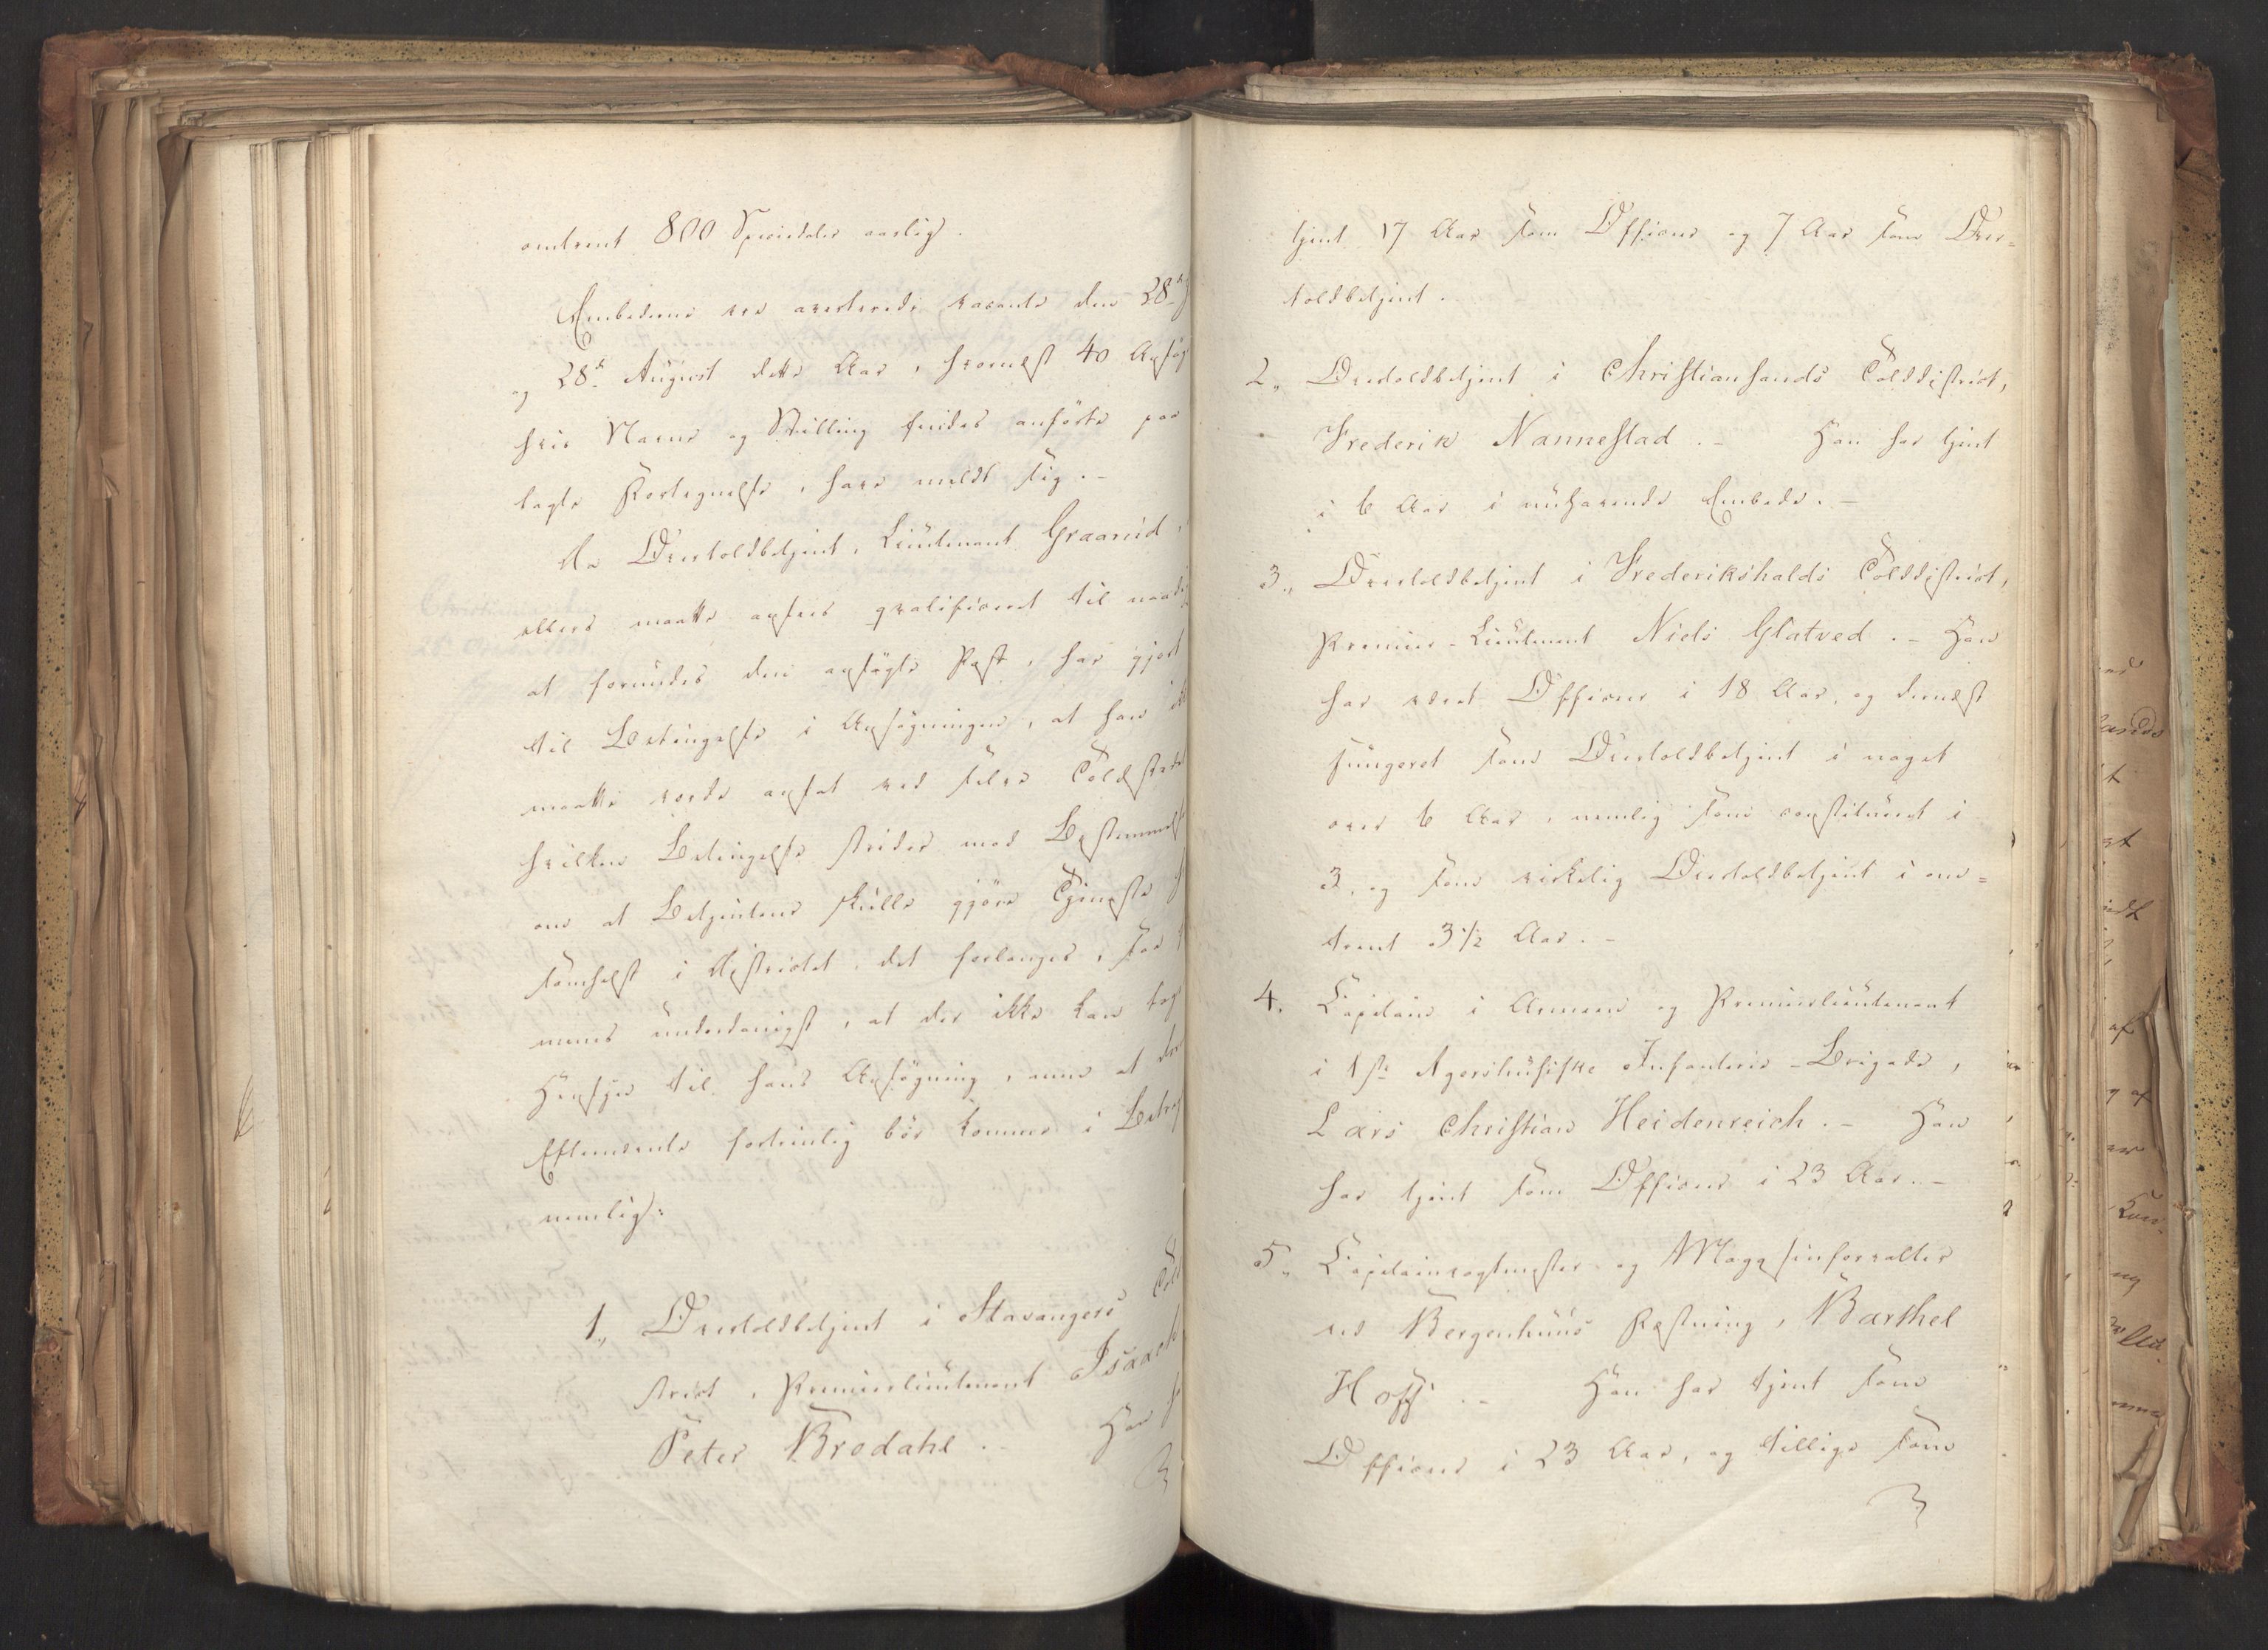 omtrent 800 Speciedaler aarlig.
Embederne ere averterede vacante den 28de
og 28de August dette Aar, hvornæst 40 Ansøg
hvis Navne og Stilling findes anførte paa
lagte Fortegnelse, have meldt sig. -
Da Overtoldbetjent, Lieutenant Graarud,
ellers maatte ansees qvalificeret til naadig
at forundes den ansøgte Post, har gjort
til Betingelse i Ansøgningen, at han ikke
maatte vorde ansat ved selve Toldstedet
hvilken Betingelse strider mod Bestemmelse
om at Betjentene skulle gjøre Tjeneste
somhelst i Districtet, det forlanges, saa
menes underdanigst, at der ikke kan tages
Hensyn til hans Ansøgning, men at der
Efternævnte fortrinlig bør komme i Betrag
nemlig:
1., Overtoldbetjent i Stavangers Told
strict, Premierlieutenant Isaach
Peter Brodahl. - Han h
tjent 17 Aar som Officier og 7 Aar som Over=
toldbetjent.
2., Overtoldbetjent i Christiansands Tolddistrict,
Frederik Nannestad. - Han har tjent
i 6 Aar i nuhavende Embede. -
3., Overtoldbetjent i Frederikshalds Tolddistrict,
Premier-Lieutenant Niels Glatved. - Han
har været Officier i 18 Aar, og dernæst
fungeret som Overtoldbetjent i noget
over 6 Aar, nemlig som constitueret i
3, og som virkelig Overtoldbetjent i om=
trent 3 1/2 Aar. -
4. Capitain i Armeen og Premierlieutenant
i 1ste Agershusiske Infanterie-Brigade,
Lars Christian Heidenreich. - Han
har tjent som Officier i 23 Aar. -
5., Capitainvagtmester og Magasinforvalter
ved Bergenhuus Fæstning, Barthel
Hoff. - Han har tjent som
Officier i 23 Aar, og tillige som